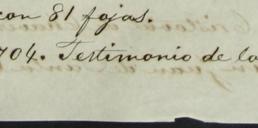 con 81 fojas.
704. Testimonio de la